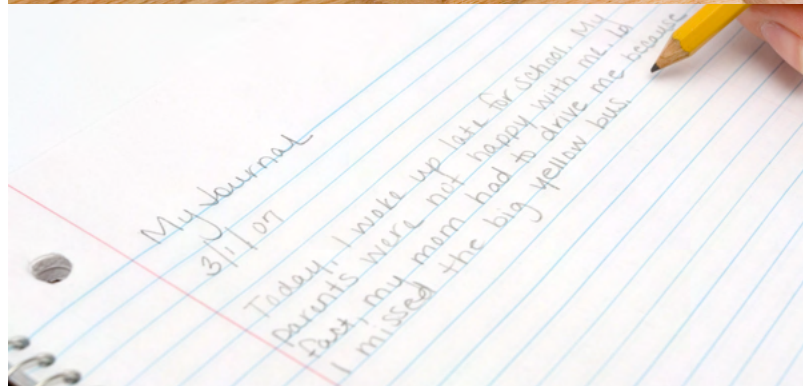 My Journal
3/1/07
Today, I woke up late for school. My
parents were not happy with me. In
fact, my mom had to drive me because
I missed the big yellow bus.